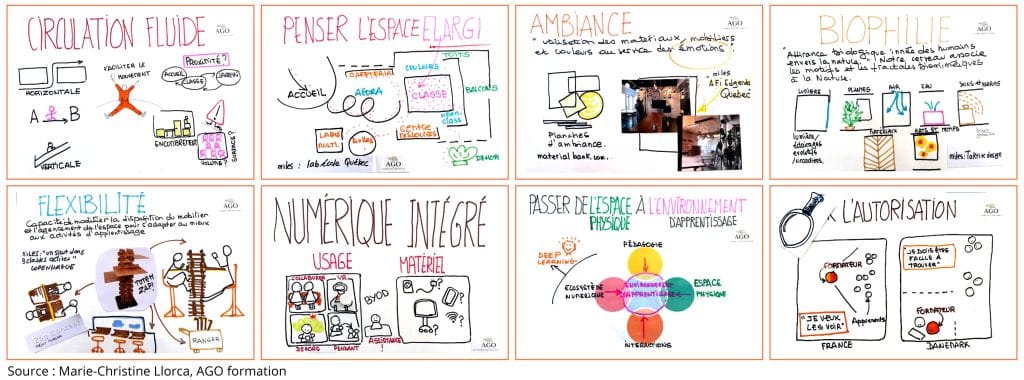 CIRCULATION FLUIDE
AGO
FACILITER LE
MOUVEMENT
PROXIMITÉ?
ACCUEIL
CLASSE
HORIZONTALE
A
B
VERTICALE
ENCOMBREMENT
VOLUME?
SURFACE?
PENSER L'ESPACE ELARGI
AGO
TOITS
COULOIRS
CAFETERIA
ACCUEIL
AGORA
CLASSE
BALCONS
OPEN
CLASS
CENTRE
RESSOURCES
LABO
MULTI.
BULLES
DEHORS
miles : lab.école Québec
AMBIANCE
AGO
"utilisation des materiaux, mobiliers
et couleurs au service des émotions
miles
AFi Edgenda
Quebec
Planches
d'ambiance.
material bank.com..
BIOPHILIE
AGO
"Attirance biologique innée des humains
envers la nature." Notre cerveau associe
les motifs et les fractales biomimétiques
à la Nature.
LUMIERE
PLANTES
AIR
EAU
SONS et
lumière,
éclairages
évolutifs
circadiens
MATERIAUX
ARTS ET MOTIFS
miles: Tarkix design
FLEXIBILITÉ
AGO
Capacité de modifier la disposition du mobilier
et l'agencement de l'espace pour s'adapter au mieux
aux activités d'apprentissage
MILES: "un statut dans
3 classes actives"
COPENHAGUE
TOTEM
ZAP!
ZAP CONCEPT
RANGER
NUMÉRIQUE INTÉGRÉ
USAGE
MATÉRIEL
COLLABORER
VR
BYOD
DEHORS
PENDANT
Assistance
!
AGO
PASSER DE L'ESPACE À L'ENVIRONNEMENT
PHYSIQUE
D'APPRENTISSAGE
AGO
DEEP
LEARNING
PÉDAGOGIE
ECOSYSTÈME
NUMERIQUE
ENVIRONNEMENT
D'APPRENTISSAGE
ESPACE
PHYSIQUE
INTERACTIONS
L'AUTORISATION
AGO
FORMATEUR
"JE DOIS ÊTRE
FACILE À
TROUVER"
"JE VEUX
LES VOIR"
Apprenants
FORMATEUR
FRANCE
DANEMARK
Source : Marie-Christine Llorca, AGO formation